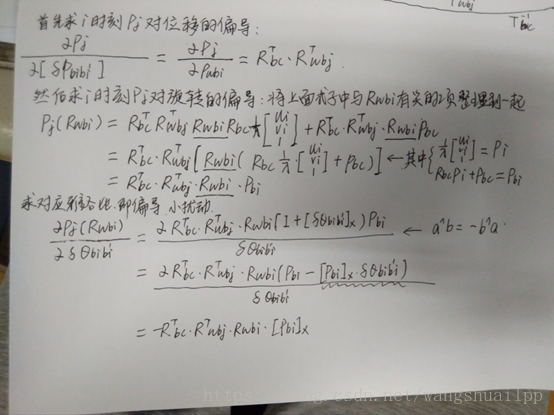 首先求i时刻Pj对位移的偏导:
∂Pj / ∂[δPbibi'] = ∂Pj / ∂Pwbi = Rbc^T · Rwbj^T.
然后求i时刻Pj对旋转的偏导:将上面式子中与Rwbi有关的项整理到一起
Pj(Rwbi) = Rbc^T Rwbj^T Rwbi Rbc 1/λ [ui vi 1] + Rbc^T · Rwbj^T · Rwbi Pbc
= Rbc^T · Rwbj^T [Rwbi ( Rbc 1/λ · [ui vi 1] + Pbc)] ← 其中 { 1/λ [ui vi 1] = Pi
= Rbc^T · Rwbj^T · Rwbi · Pbi   RbcPi + Pbc = Pbi
即偏导,小扰动
∂Pj(Rwbi) / ∂δθbibi' = ∂Rbc^T · Rwbj^T · Rwbi(1+[δθbibi']×)Pbi / δθbibi' ← a^b = -b^a
= ∂Rbc^T · Rwbj^T · Rwbi(Pbi - [Pbi]× · δθbibi') / δθbibi'
= -Rbc^T · Rwbj^T · Rwbi · [Pbi]×
Twbi
Tbc
csdn.net/wangshuailpp